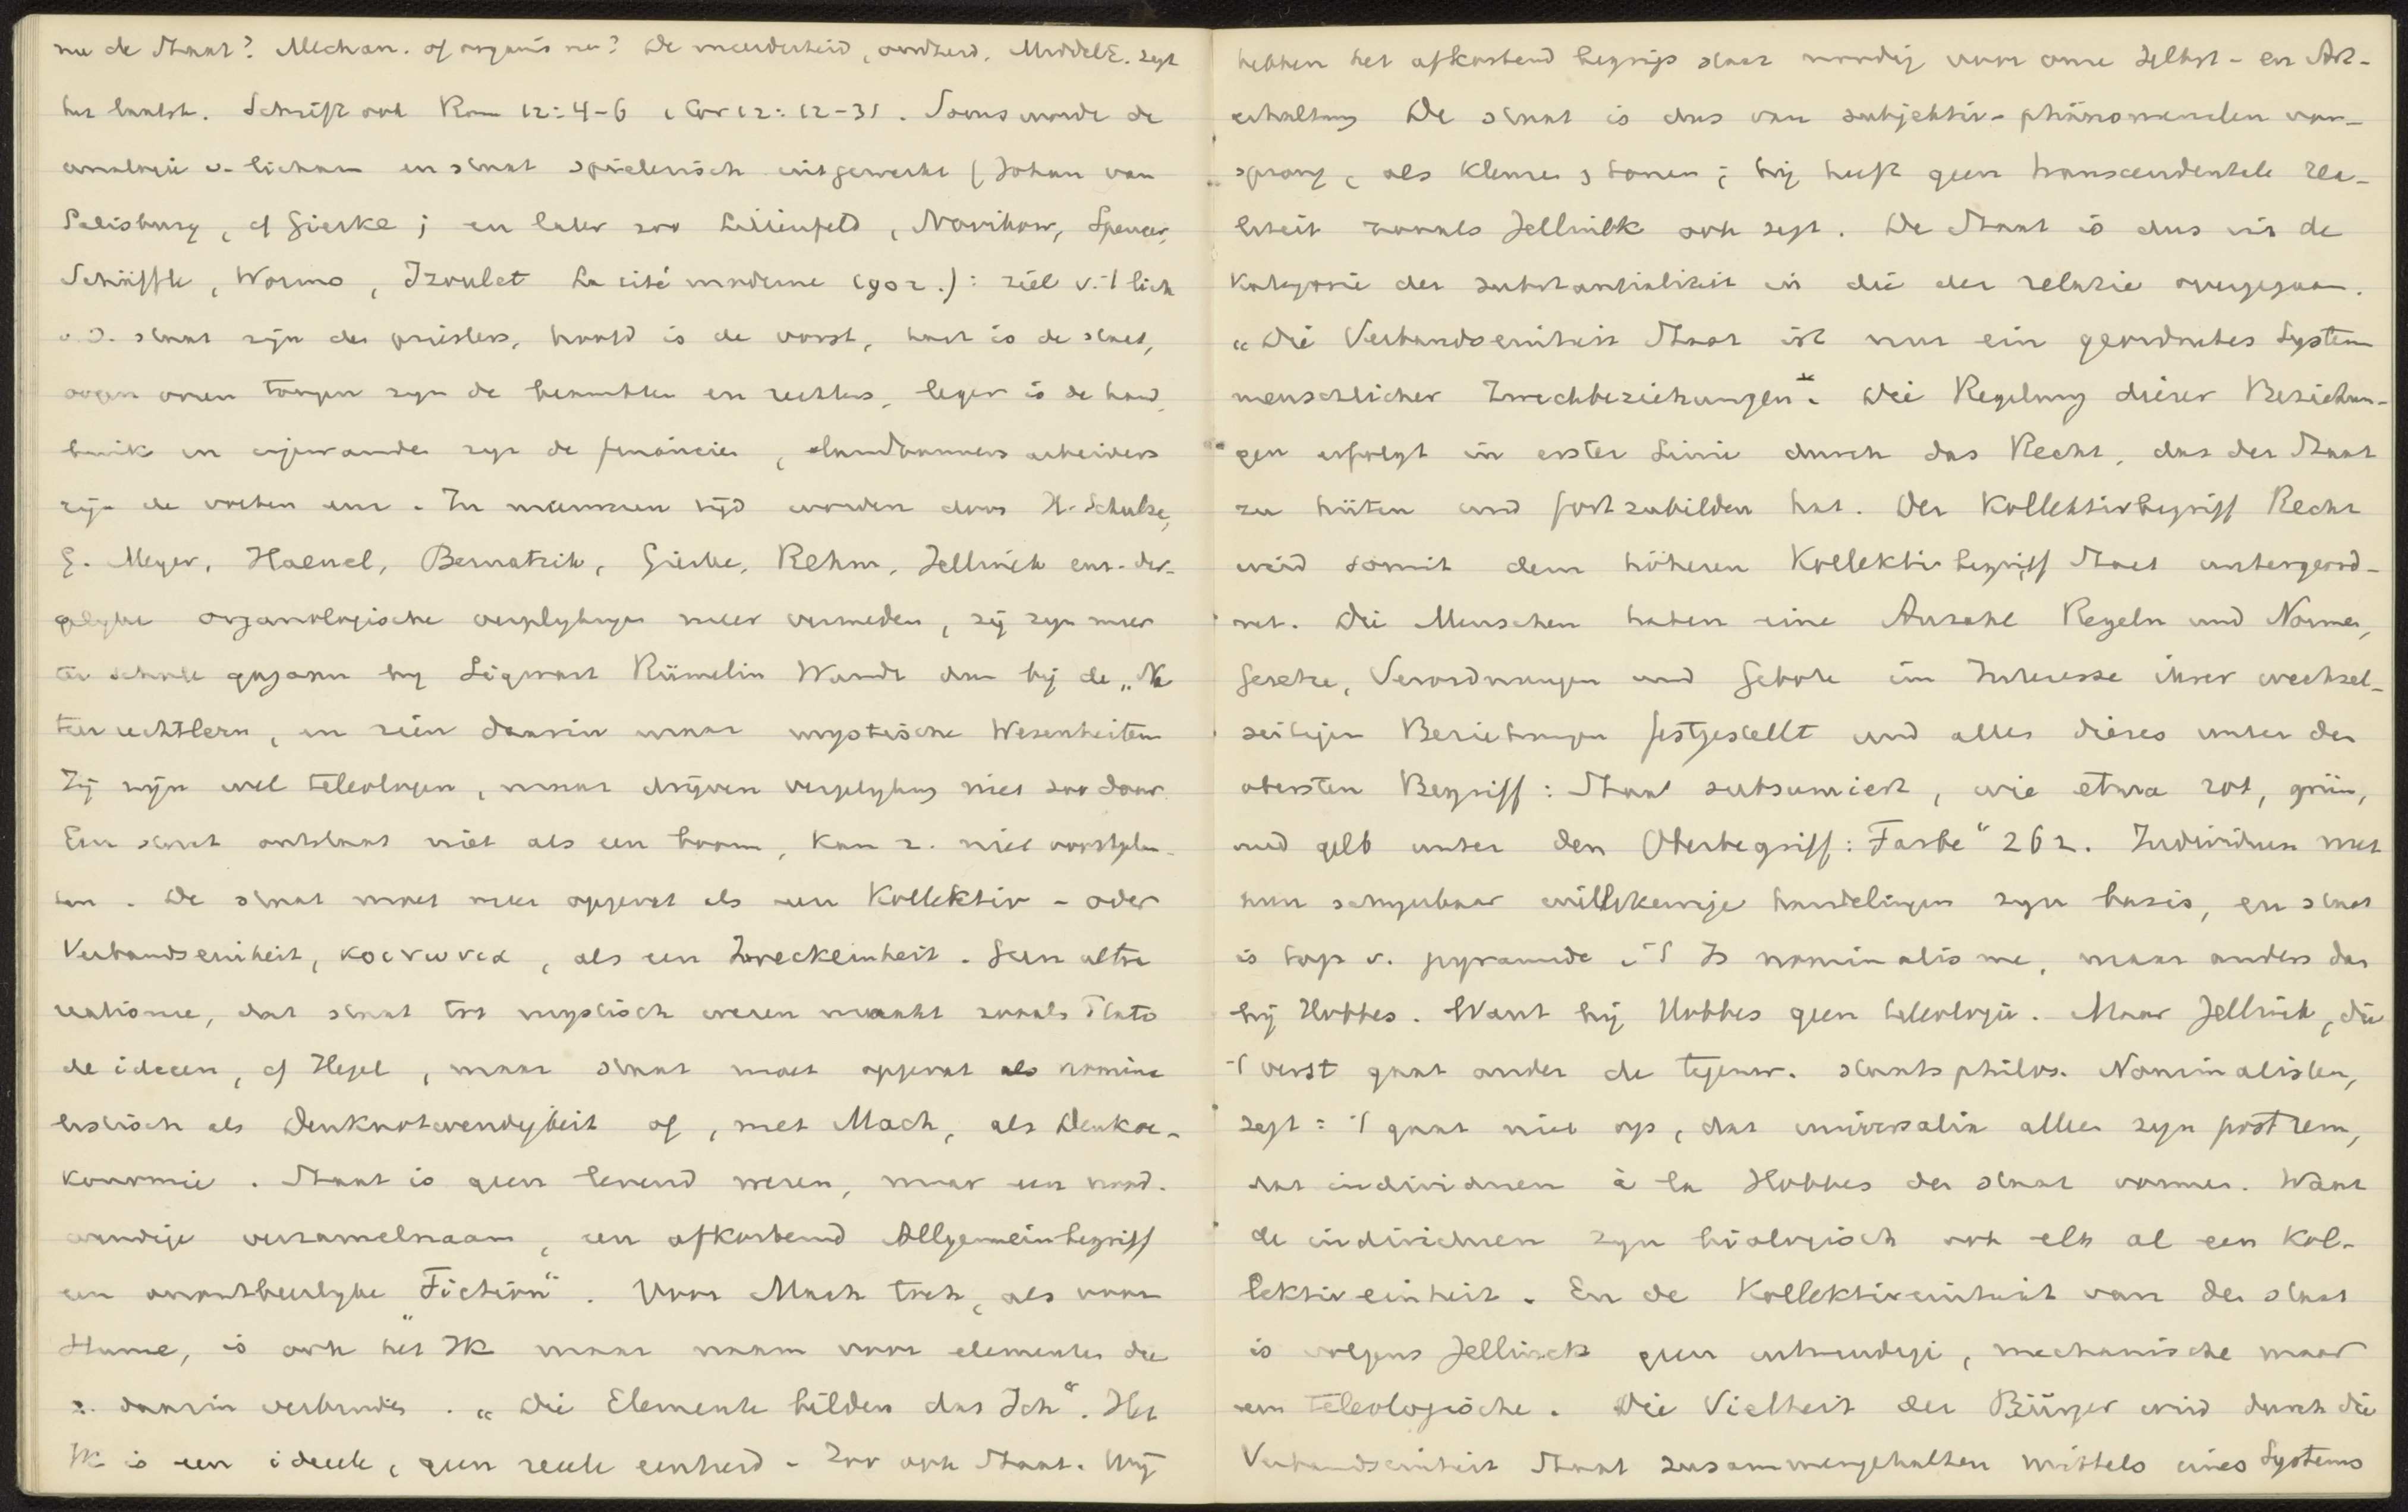 nu de Staat? Mechan. of organisme? De meerderheid, oudheid, MiddelE. zegt
het laatste. Schrift ook Rom 12:4-6 1 Cor 12:12-31. Soms werd de
analogie v. lichaam en staat spielerisch uitgewerkt (Johan van
Salisbury, cf Gierke; en later zoo Lilienfeld, Novikow, Spencer,
Schäffle, Worms, Izoulet La cité moderne (902.): ziel v. 't lich
v. d. staat zijn de priesters, hoofd is de vorst, hart is de staat,
oogen ooren tongen zijn de beambten en rechters, leger is de hand,
buik en ingewanden zijn de financien, landbouwers arbeiders
zijn de voeten enz. In nieuweren tijd worden door H. Schulze,
G. Meyer, Haenel, Bernatzik, Gierke, Rehm, Jellinek enz. der-
gelijke organologische vergelijkingen meer vermeden, zij zijn meer
ter schole gegaan bij Sigwart Rümelin Wundt dan bij de „Na
turrechtlern, en zien daarin maar mystische Wesenheiten
Zij zijn wel teleologen, maar drijven vergelijking niet zoo door.
Een staat ontstaat niet als een boom, kan z. niet voortplan-
ten. De staat moet meer opgevat als een Kollektiv- oder
Verbandseinheit, κοινωνια, als een Zweckeinheit. Geen ultra
realisme, dat staat tot mystisch wezen maakt zooals Plato
de ideeen, of Hegel, maar staat moet opgevat als nomina
listisch als Denknotwendigkeit of, met Mach, als Denkoe-
konomie. Staat is geen levend wezen, maar een nood-
wendige verzamelnaam, een afkortend Allgemeinbegriff
een onontbeerlijke "Fiction". Voor Mach toch, als voor
Hume, is ook het "Ik maar naam voor elementen die
z. daarin verbinden. „Die Elemente bilden das Ich". Het
Ik is een ideele, geen reele eenheid - Zoo ook Staat. Wij
hebben het afkortend begrip staat noodig voor onze Selbst- en Art-
erhaltung De staat is dus van subjektiv-phänomenalen oor-
sprong, als kleuren, tonen; hij heeft geen transcendentale rea-
liteit zooals Jellinek ook zegt. De Staat is dus uit de
kategorie der substantialiteit in die der relatie overgegaan.
„Die Verbandseinheit Staat ist nur ein geordnetes System
menschlicher Zweckbeziehungen". Die Regelung dieser Beziehun-
gen erfolgt in erster Linie durch das Recht, das der Staat
zu hüten und fortzubilden hat. Der Kollektivbegriff Recht
wird somit dem höheren Kollektivbegriff Staat untergeord-
net. Die Menschen haben eine Anzahl Regeln und Normen,
Gesetze, Verordnungen und Gebote im Interesse ihrer wechsel-
seitigen Beziehungen festgestellt und alles dieses unter den
obersten Begriff: Staat subsumiert, wie etwa rot, grün,
und gelb unter den Oberbegriff: Farbe" 262. Individuen met
hun schijnbaar willekeurige handelingen zijn basis, en staat
is top v. pyramide. 't Is nominalisme, maar anders dan
bij Hobbes. Want bij Hobbes geen teleologie. Maar Jellinek, die
't verst gaat onder de tegenw. staatsphilos. Nominalisten,
zegt: 't gaat niet op, dat universalia alleen zijn post rem,
dat individuen à la Hobbes den staat vormen. Want
de individuen zijn biologisch ook elk al een Kol-
lektiveinheit. En de Kollektiveinheit van den staat
is volgens Jellinek geen uitwendige, mechanische maar
een teleologische. Die Vielheit der Bürger wird durch die
Verbandseinheit Staat zusammengehalten mittels eines Systems